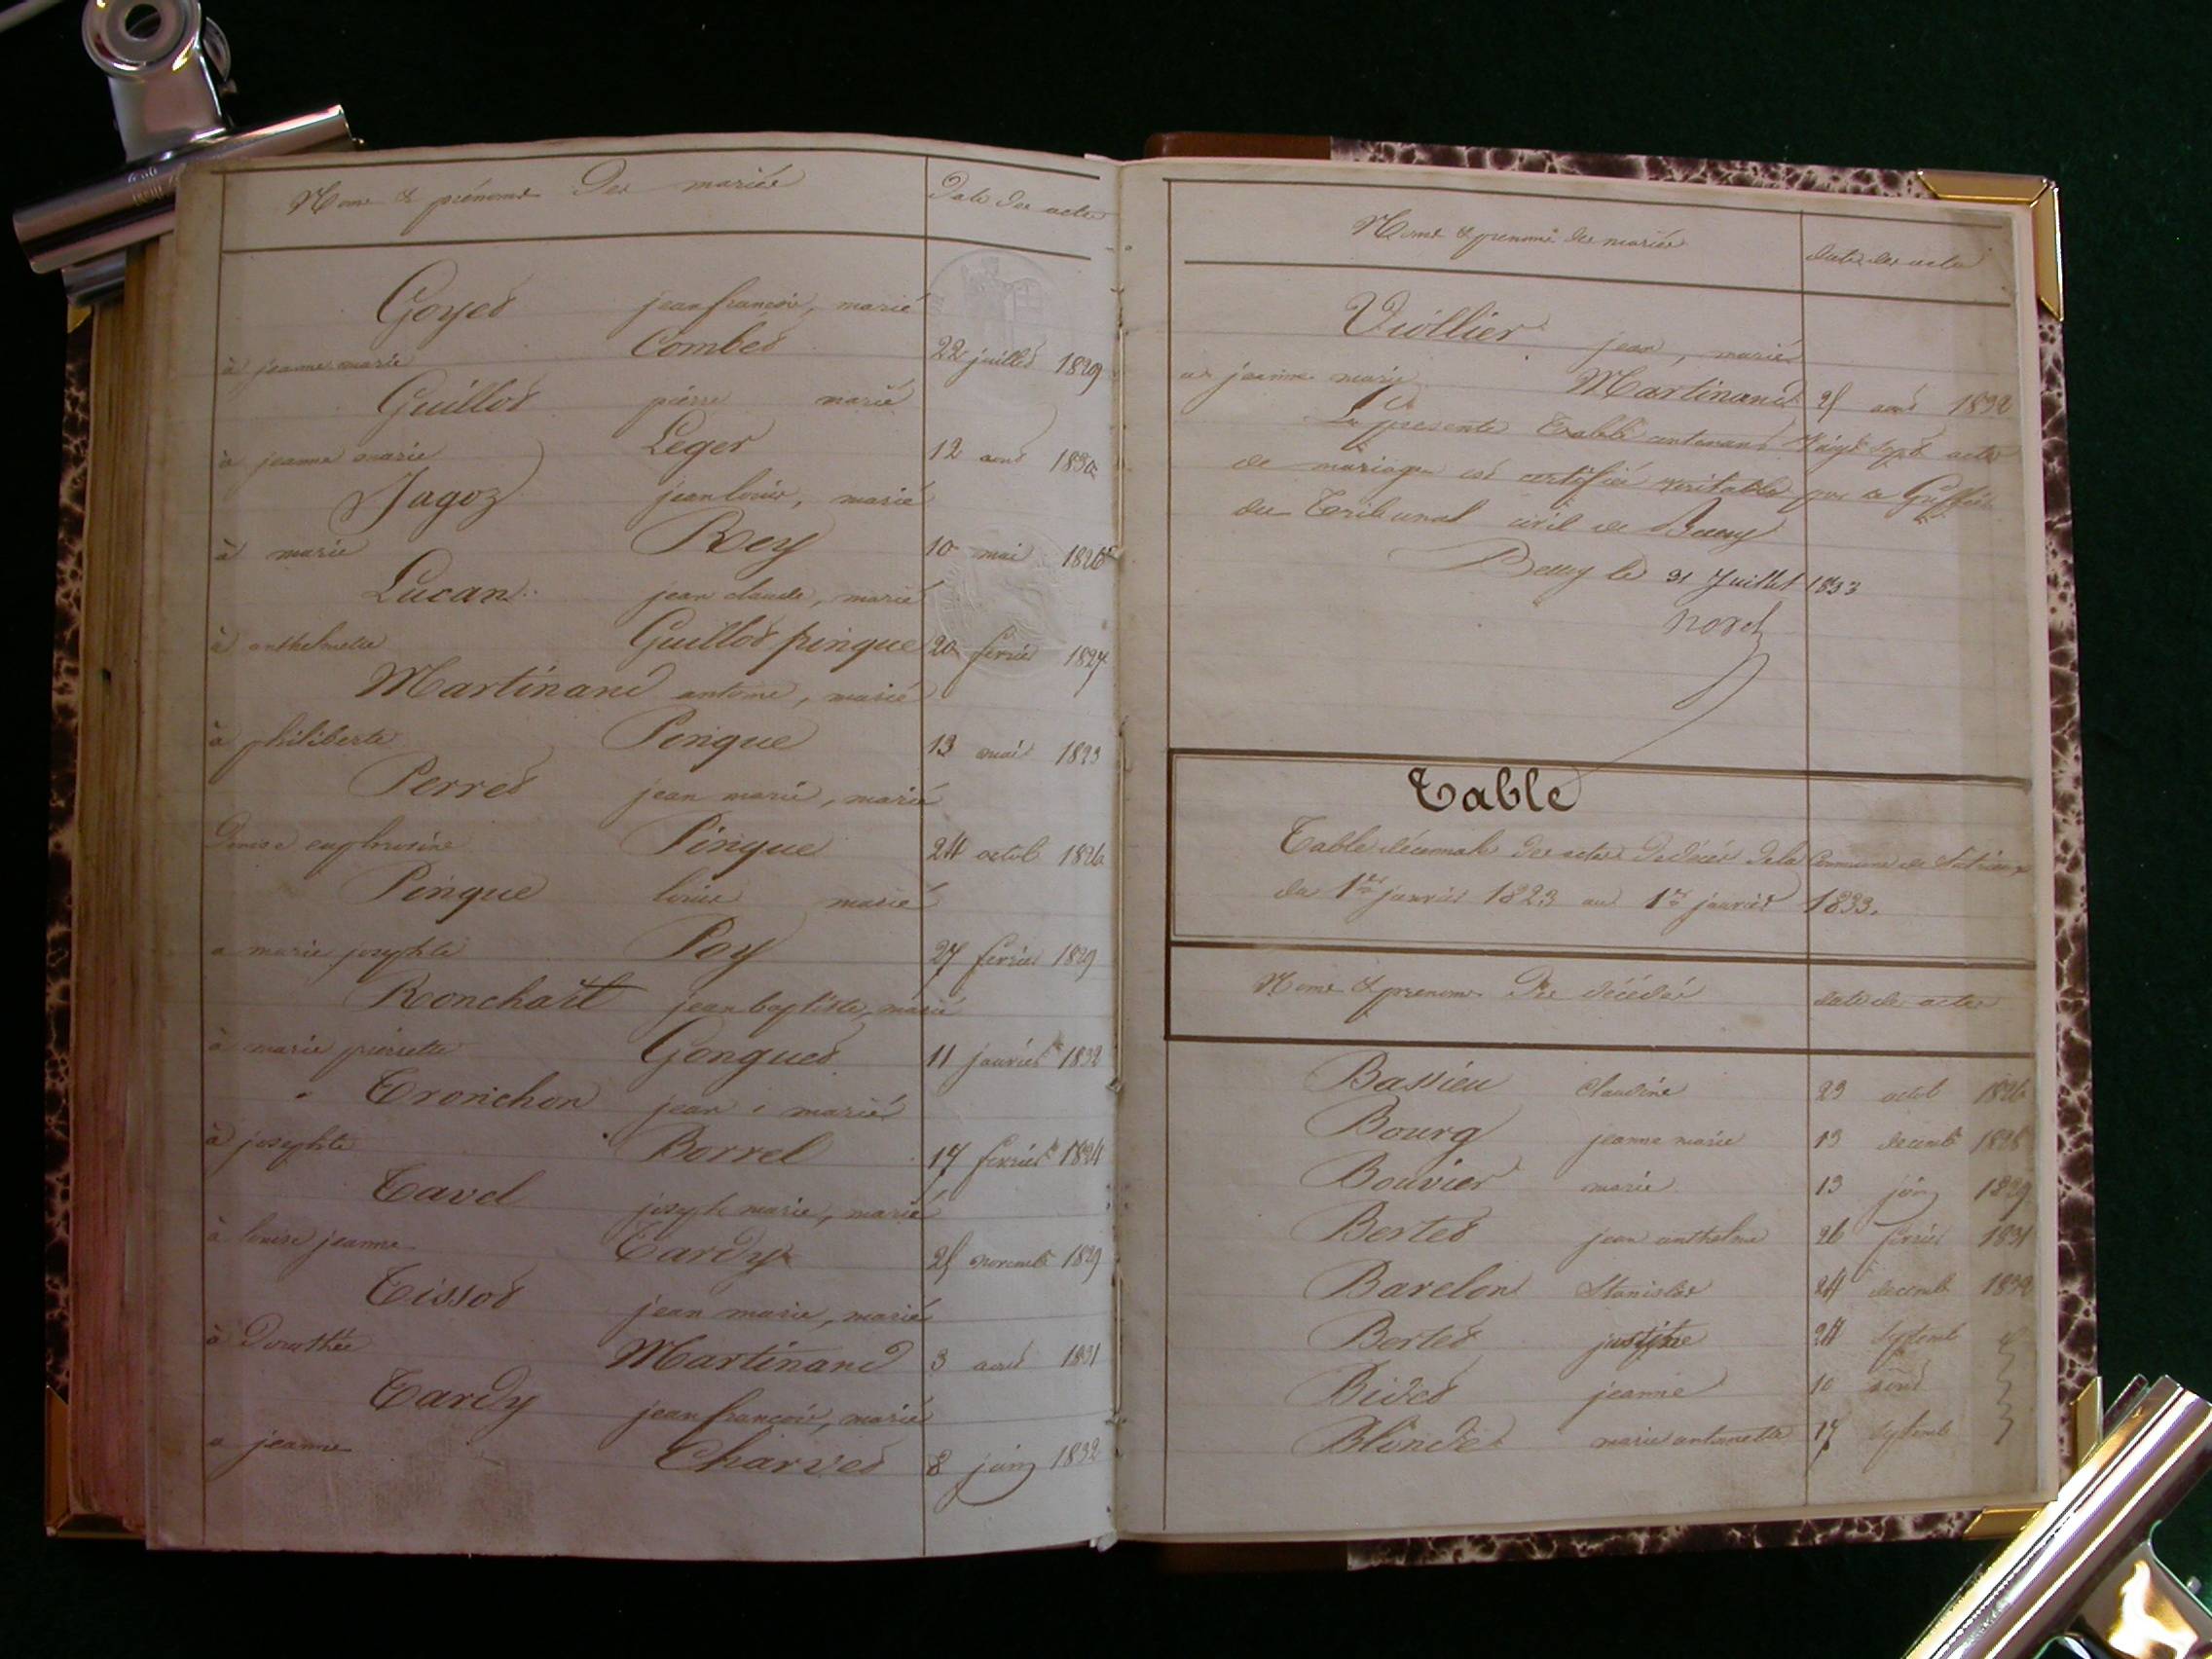 Noms & prénoms Des mariés
Date des actes
Goyet jean françois, marié
à jeanne marie Combet 22 juillet 1829
Guillot pierre marié
à jeanne marie Leger 12 aout 1830
Jagoz jean louis, marié
à marie Rey 10 mai 1826
Lucan jean claude, marié
à anthelmette Guillot pingue 20 fevrier 1827
Martinand antoine, marié
à philiberte Pingue 13 1823
Perret jean marie, marié
Denise euphrosine Pingue 24 octob 1826
Pingue louis marié
a marie josephte Poy 27 fevrier 1829
Ronchait jean baptiste, marié
à marie pierrette Gonguet 11 janvier 1832
Tronchon jean marié
à josephte Borrel 17 fevrier 1824
Tavel joseph marie, marié
à louise jeanne Tardy 25 novemb 1829
Tissot jean marie, marié
à Dorothée Martinand 3 1831
Tardy jean françois, marié
a jeanne Charvet 8 juin 1832
Noms & prenoms des mariés
date des actes
Viollier jean, marié
a jeanne marie Martinand 25 1832
La presente Table contenant Vingt sept actes
de mariage est certifiée veritable par le Greffier
du Tribunal civil de Belley
Belley le 31 Juillet 1833
Table
Table décennale des actes De décès De la Commune de
du 1er janvier 1823 au 1er janvier 1833.
Noms & prenoms Des décédés
date des actes
Bassieu claudine 23 octob 1826
Bourg jeanne marie 13 decemb 1828
Bouvier marie 13 juin 1829
Bertet jean anthelme 26 fevrier 1831
Barelon Stanislas 24 decemb 1832
Bertet justine 24 septemb
Bidet jeanne 10 aout
Blondet marie antoinette 17 septemb